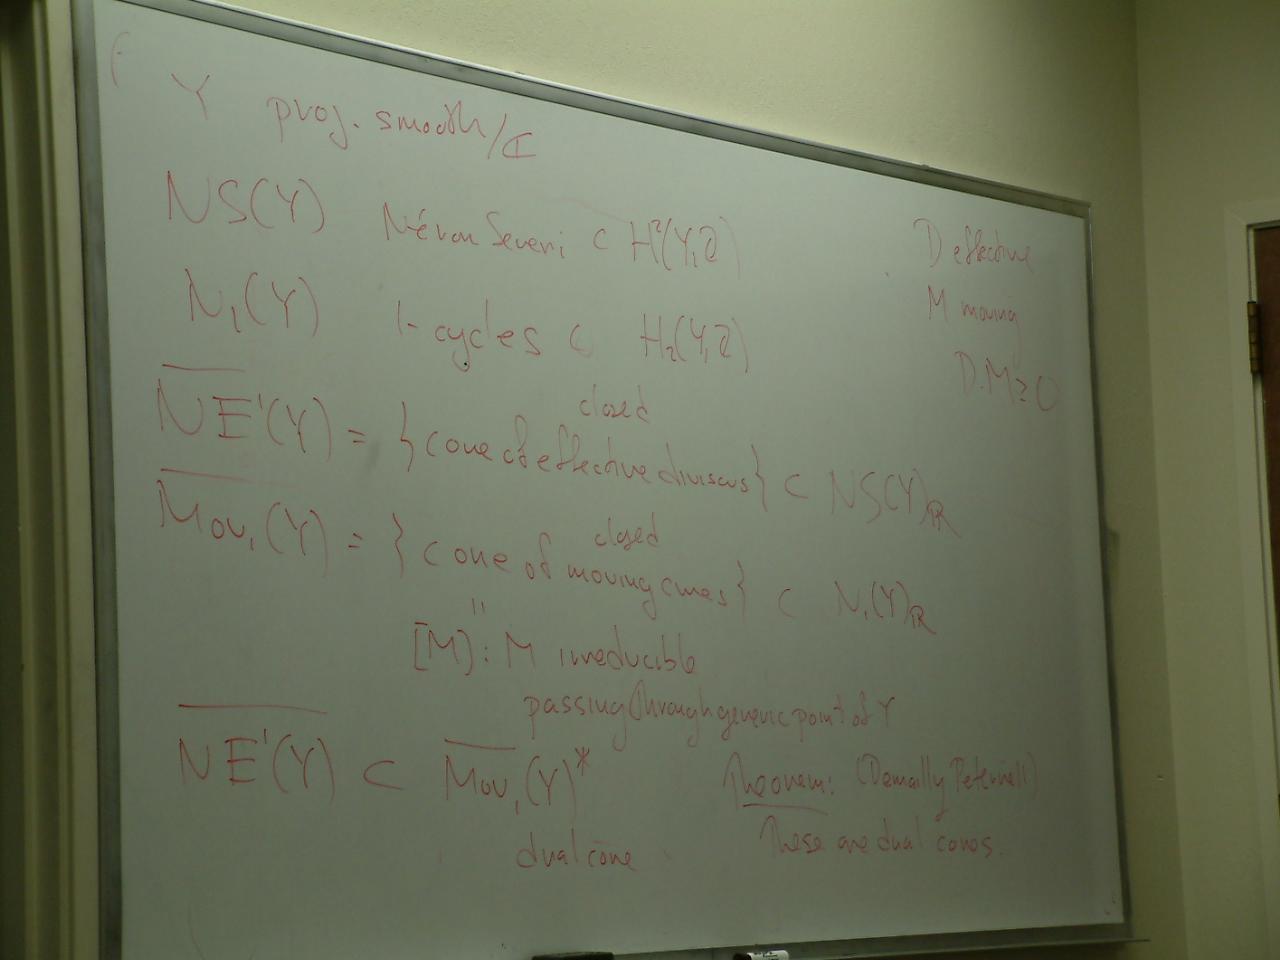 Y proj. smooth/ℂ
NS(Y) Néron Severi ⊂ H²(Y,ℤ)
N₁(Y) 1-cycles ⊂ H₂(Y,ℤ)
D effective
M moving
D.M ≥ 0
closed
N̅E̅¹(Y) = { cone of effective divisors } ⊂ NS(Y)_ℝ
closed
M̅o̅v̅₁(Y) = { cone of moving curves } ⊂ N₁(Y)_ℝ
"
[M] : M irreducible
passing through generic point of Y
N̅E̅¹(Y) ⊂ M̅o̅v̅₁(Y)*
dual cone
Theorem: (Demailly Peternell)
These are dual cones.